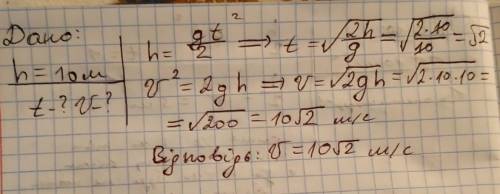 Дано:
h = 10 м
t - ? v - ?
h = gt²/2 ⟹ t = √(2h/g) = √(2·10/10) = √2
v² = 2gh ⟹ v = √2gh = √2·10·10 =
= √200 = 10√2 м/с
Відповідь: v = 10√2 м/с